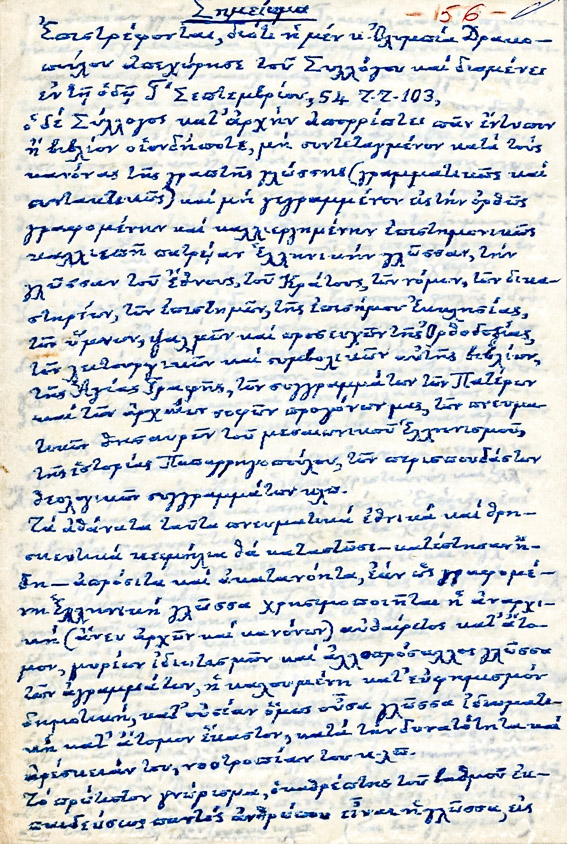 Σημείωμα
-156-
Ἐπιστρέφονται, διότι ἡ μέν κ. Ὀλυμπία Δρακο-
πούλου ἀπεχώρησε τοῦ Συλλόγου καί διαμένει
ἐν τῇ ὁδῷ Γ΄ Σεπτεμβρίου, 54 Τ.Τ.-103,
ὁ δέ Σύλλογος κατ' ἀρχήν ἀπορρίπτει πᾶν ἔντυπον
ἤ βιβλίον οἱονδήποτε, μή συντεταγμένον κατά τούς
κανόνας τῆς γραπτῆς γλώσσης (γραμματικῶς καί
συντακτικῶς) καί μή γεγραμμένον εἰς τήν ὀρθῶς
γραφομένην καί καλλιεργημένην ἐπιστημονικῶς
καλλιεπῆ πατρῴαν Ἑλληνικήν γλῶσσαν, τήν
γλῶσσαν τοῦ Ἔθνους, τοῦ Κράτους, τῶν νόμων, τῶν δικα-
στηρίων, τῶν ἐπιστημῶν, τῆς ἐπισήμου Ἐκκλησίας,
τῶν ὕμνων, ψαλμῶν καί προσευχῶν τῆς Ὀρθοδοξίας,
τῶν λειτουργικῶν καί συμβολικῶν αὐτῆς βιβλίων,
τῆς Ἁγίας Γραφῆς, τῶν συγγραμμάτων τῶν Πατέρων
καί τῶν ἀρχαίων σοφῶν προγόνων μας, τῶν πνευμα-
τικῶν θησαυρῶν τοῦ μεσαιωνικοῦ Ἑλληνισμοῦ,
τῆς ἱστορίας Παπαρρηγοπούλου, τῶν περισπουδάστων
θεολογικῶν συγγραμμάτων κλπ.
Τά ἀθάνατα ταῦτα πνευματικά ἐθνικά καί θρη-
σκευτικά κειμήλια θά καταστῶσι - κατέστησαν ἤ-
δη - ἀπρόσιτα καί ἀκατανόητα, ἐάν ὡς γραφομέ-
νη Ἑλληνική γλῶσσα χρησιμοποιῆται ἡ ἀναρχι-
κή (ἄνευ ἀρχῶν καί κανόνων) αὐθαίρετος κατ' ἄτο-
μον, μυρίων ἰδιωτισμῶν καί ἀλλοπρόσαλλος γλῶσσα
τῶν ἀγραμμάτων, ἡ καλουμένη κατ' εὐφημισμόν
δημοτική, κατ' οὐσίαν ὅμως οὖσα γλῶσσα ἰδιωματι-
κή κατ' ἄτομον ἕκαστον, κατά τήν δυνατότητα καί
ἀρέσκειάν του, νοοτροπίαν του κ.λπ.
Τό πρώτιστον γνώρισμα, ὁ καθρέπτης τοῦ βαθμοῦ ἐκ-
παιδεύσεως παντός ἀνθρώπου εἶναι ἡ γλῶσσα, εἰς